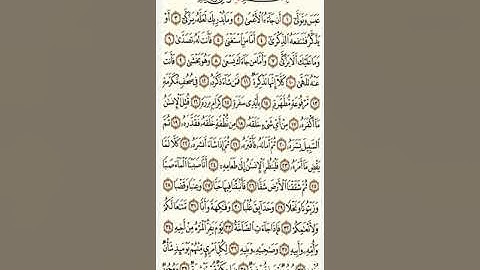 عَبَسَ وَتَوَلَّىٰٓ ١ أَن جَآءَهُ ٱلْأَعْمَىٰ ٢ وَمَا يُدْرِيكَ لَعَلَّهُۥ يَزَّكَّىٰٓ ٣ أَوْ
يَذَّكَّرُ فَتَنفَعَهُ ٱلذِّكْرَىٰٓ ٤ أَمَّا مَنِ ٱسْتَغْنَىٰ ٥ فَأَنتَ لَهُۥ تَصَدَّىٰ ٦
وَمَا عَلَيْكَ أَلَّا يَزَّكَّىٰ ٧ وَأَمَّا مَن جَآءَكَ يَسْعَىٰ ٨ وَهُوَ يَخْشَىٰ ٩ فَأَنتَ
عَنْهُ تَلَهَّىٰ ١٠ كَلَّآ إِنَّهَا تَذْكِرَةٌ ١١ فَمَن شَآءَ ذَكَرَهُۥ ١٢ فِى صُحُفٍ مُّكَرَّمَةٍ
١٣ مَّرْفُوعَةٍ مُّطَهَّرَةٍۭ ١٤ بِأَيْدِى سَفَرَةٍ ١٥ كِرَامٍۭ بَرَرَةٍ ١٦ قُتِلَ ٱلْإِنسَٰنُ
مَآ أَكْفَرَهُۥ ١٧ مِنْ أَىِّ شَىْءٍ خَلَقَهُۥ ١٨ مِن نُّطْفَةٍ خَلَقَهُۥ فَقَدَّرَهُۥ ١٩ ثُمَّ
ٱلسَّبِيلَ يَسَّرَهُۥ ٢٠ ثُمَّ أَمَاتَهُۥ فَأَقْبَرَهُۥ ٢١ ثُمَّ إِذَا شَآءَ أَنشَرَهُۥ ٢٢ كَلَّا لَمَّا
يَقْضِ مَآ أَمَرَهُۥ ٢٣ فَلْيَنظُرِ ٱلْإِنسَٰنُ إِلَىٰ طَعَامِهِۦٓ ٢٤ أَنَّا صَبَبْنَا ٱلْمَآءَ صَبًّا
٢٥ ثُمَّ شَقَقْنَا ٱلْأَرْضَ شَقًّا ٢٦ فَأَنۢبَتْنَا فِيهَا حَبًّا ٢٧ وَعِنَبًا وَقَضْبًا ٢٨
وَزَيْتُونًا وَنَخْلًا ٢٩ وَحَدَآئِقَ غُلْبًا ٣٠ وَفَٰكِهَةً وَأَبًّا ٣١ مَّتَٰعًا لَّكُمْ
وَلِأَنْعَٰمِكُمْ ٣٢ فَإِذَا جَآءَتِ ٱلصَّآخَّةُ ٣٣ يَوْمَ يَفِرُّ ٱلْمَرْءُ مِنْ أَخِيهِ ٣٤
وَأُمِّهِۦ وَأَبِيهِ ٣٥ وَصَٰحِبَتِهِۦ وَبَنِيهِ ٣٦ لِكُلِّ ٱمْرِئٍ مِّنْهُمْ يَوْمَئِذٍ شَأْنٌ